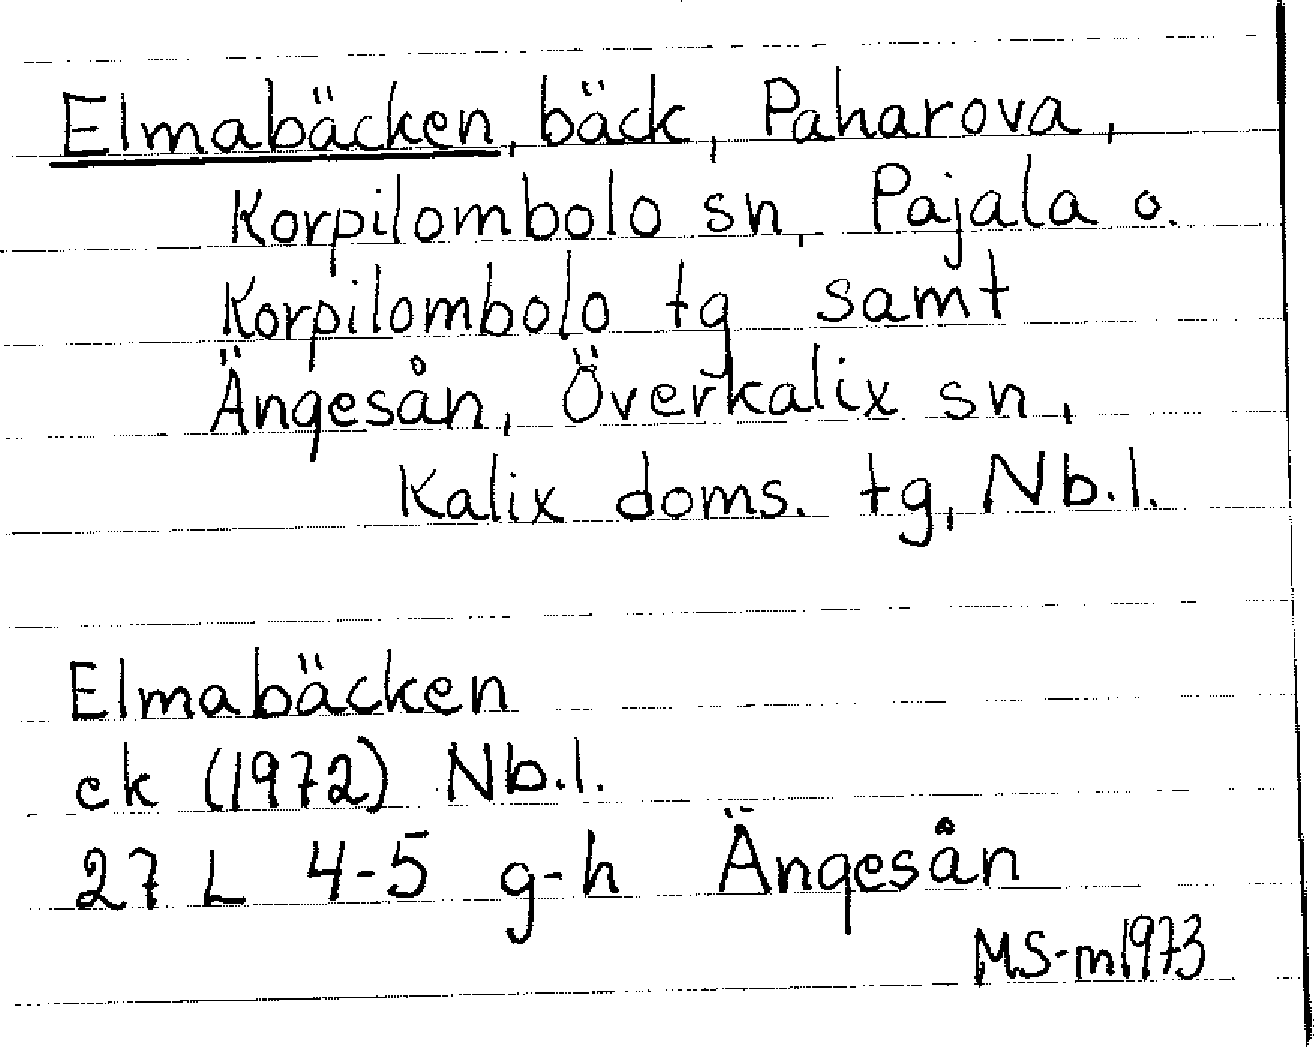 Elmabäcken, bäck, Paharova,
Korpilombolo sn, Pajala o.
Korpilombolo tg samt
Ängesån, Överkalix sn,
Kalix doms. tg, Nb.l.
Elmabäcken
ek (1972) Nb.l.
27 L 4-5 g-h Ängesån
MS-m1973